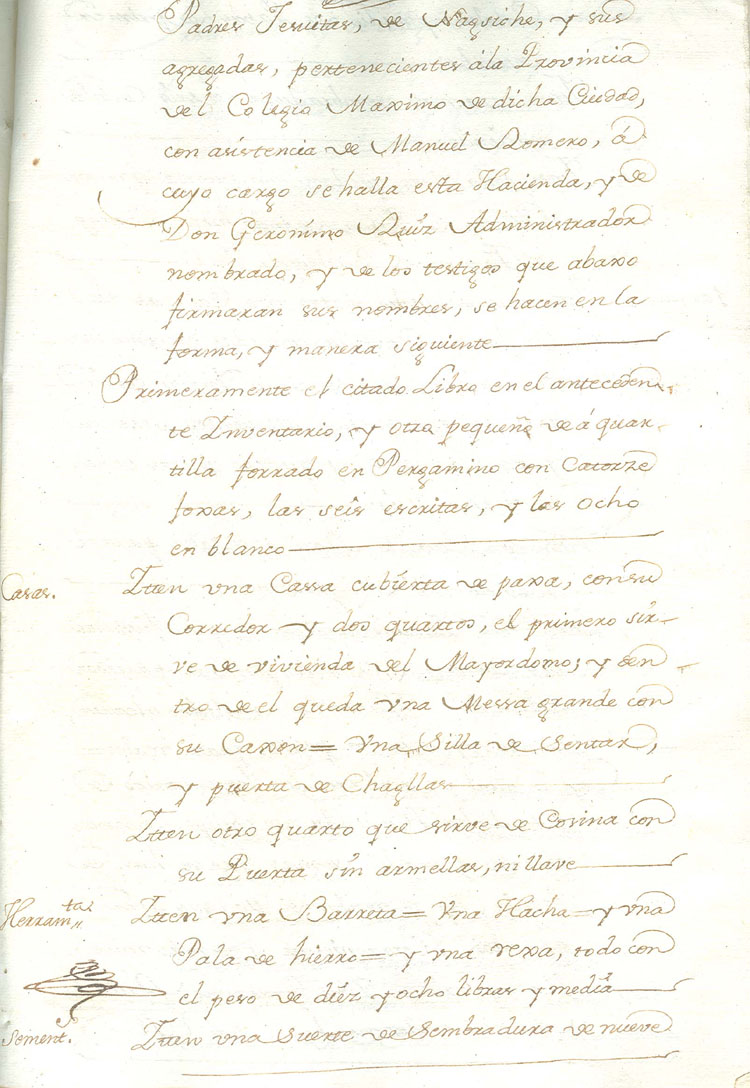 Padres Jesuitas, de Nagsiche, y sus
agregadas, pertenecientes ála Provincia
del Colegio Maximo de dicha Ciudad,
con asistencia de Manuel Romero, á
cuyo cargo se halla esta Hacienda, y de
Don Geronimo Ruiz Administrador
nombrado, y de los testigos que abaxo
firmaran sus nombres, se hacen en la
forma, y manera siguiente
Primeramente el citado Libro en el anteceden-
te Inventario, y otro pequeño de á quar-
tilla forrado en Pergamino con Catorze
foxas, las seis escritas, y las ocho
en blanco
Casas. Itten vna Cassa cubierta de paxa, consu
Corredor y dos quartos, el primero sir-
ve de vivienda del Mayordomo; y den-
tro de el queda vna Messa grande con
su Caxon = Vna Silla de Sentar,
y puerta de Chagllas
Itten otro quarto que sirve de Cosina con
su Puerta sin armellas, ni llave
Herramta. Itten vna Barreta = Vna Hacha = y vna
Pala de hierro = y vna rexa, todo con
el peso de diez y ocho libras y media
Sement.s Itten vna Suerte de Sembradura de nueve